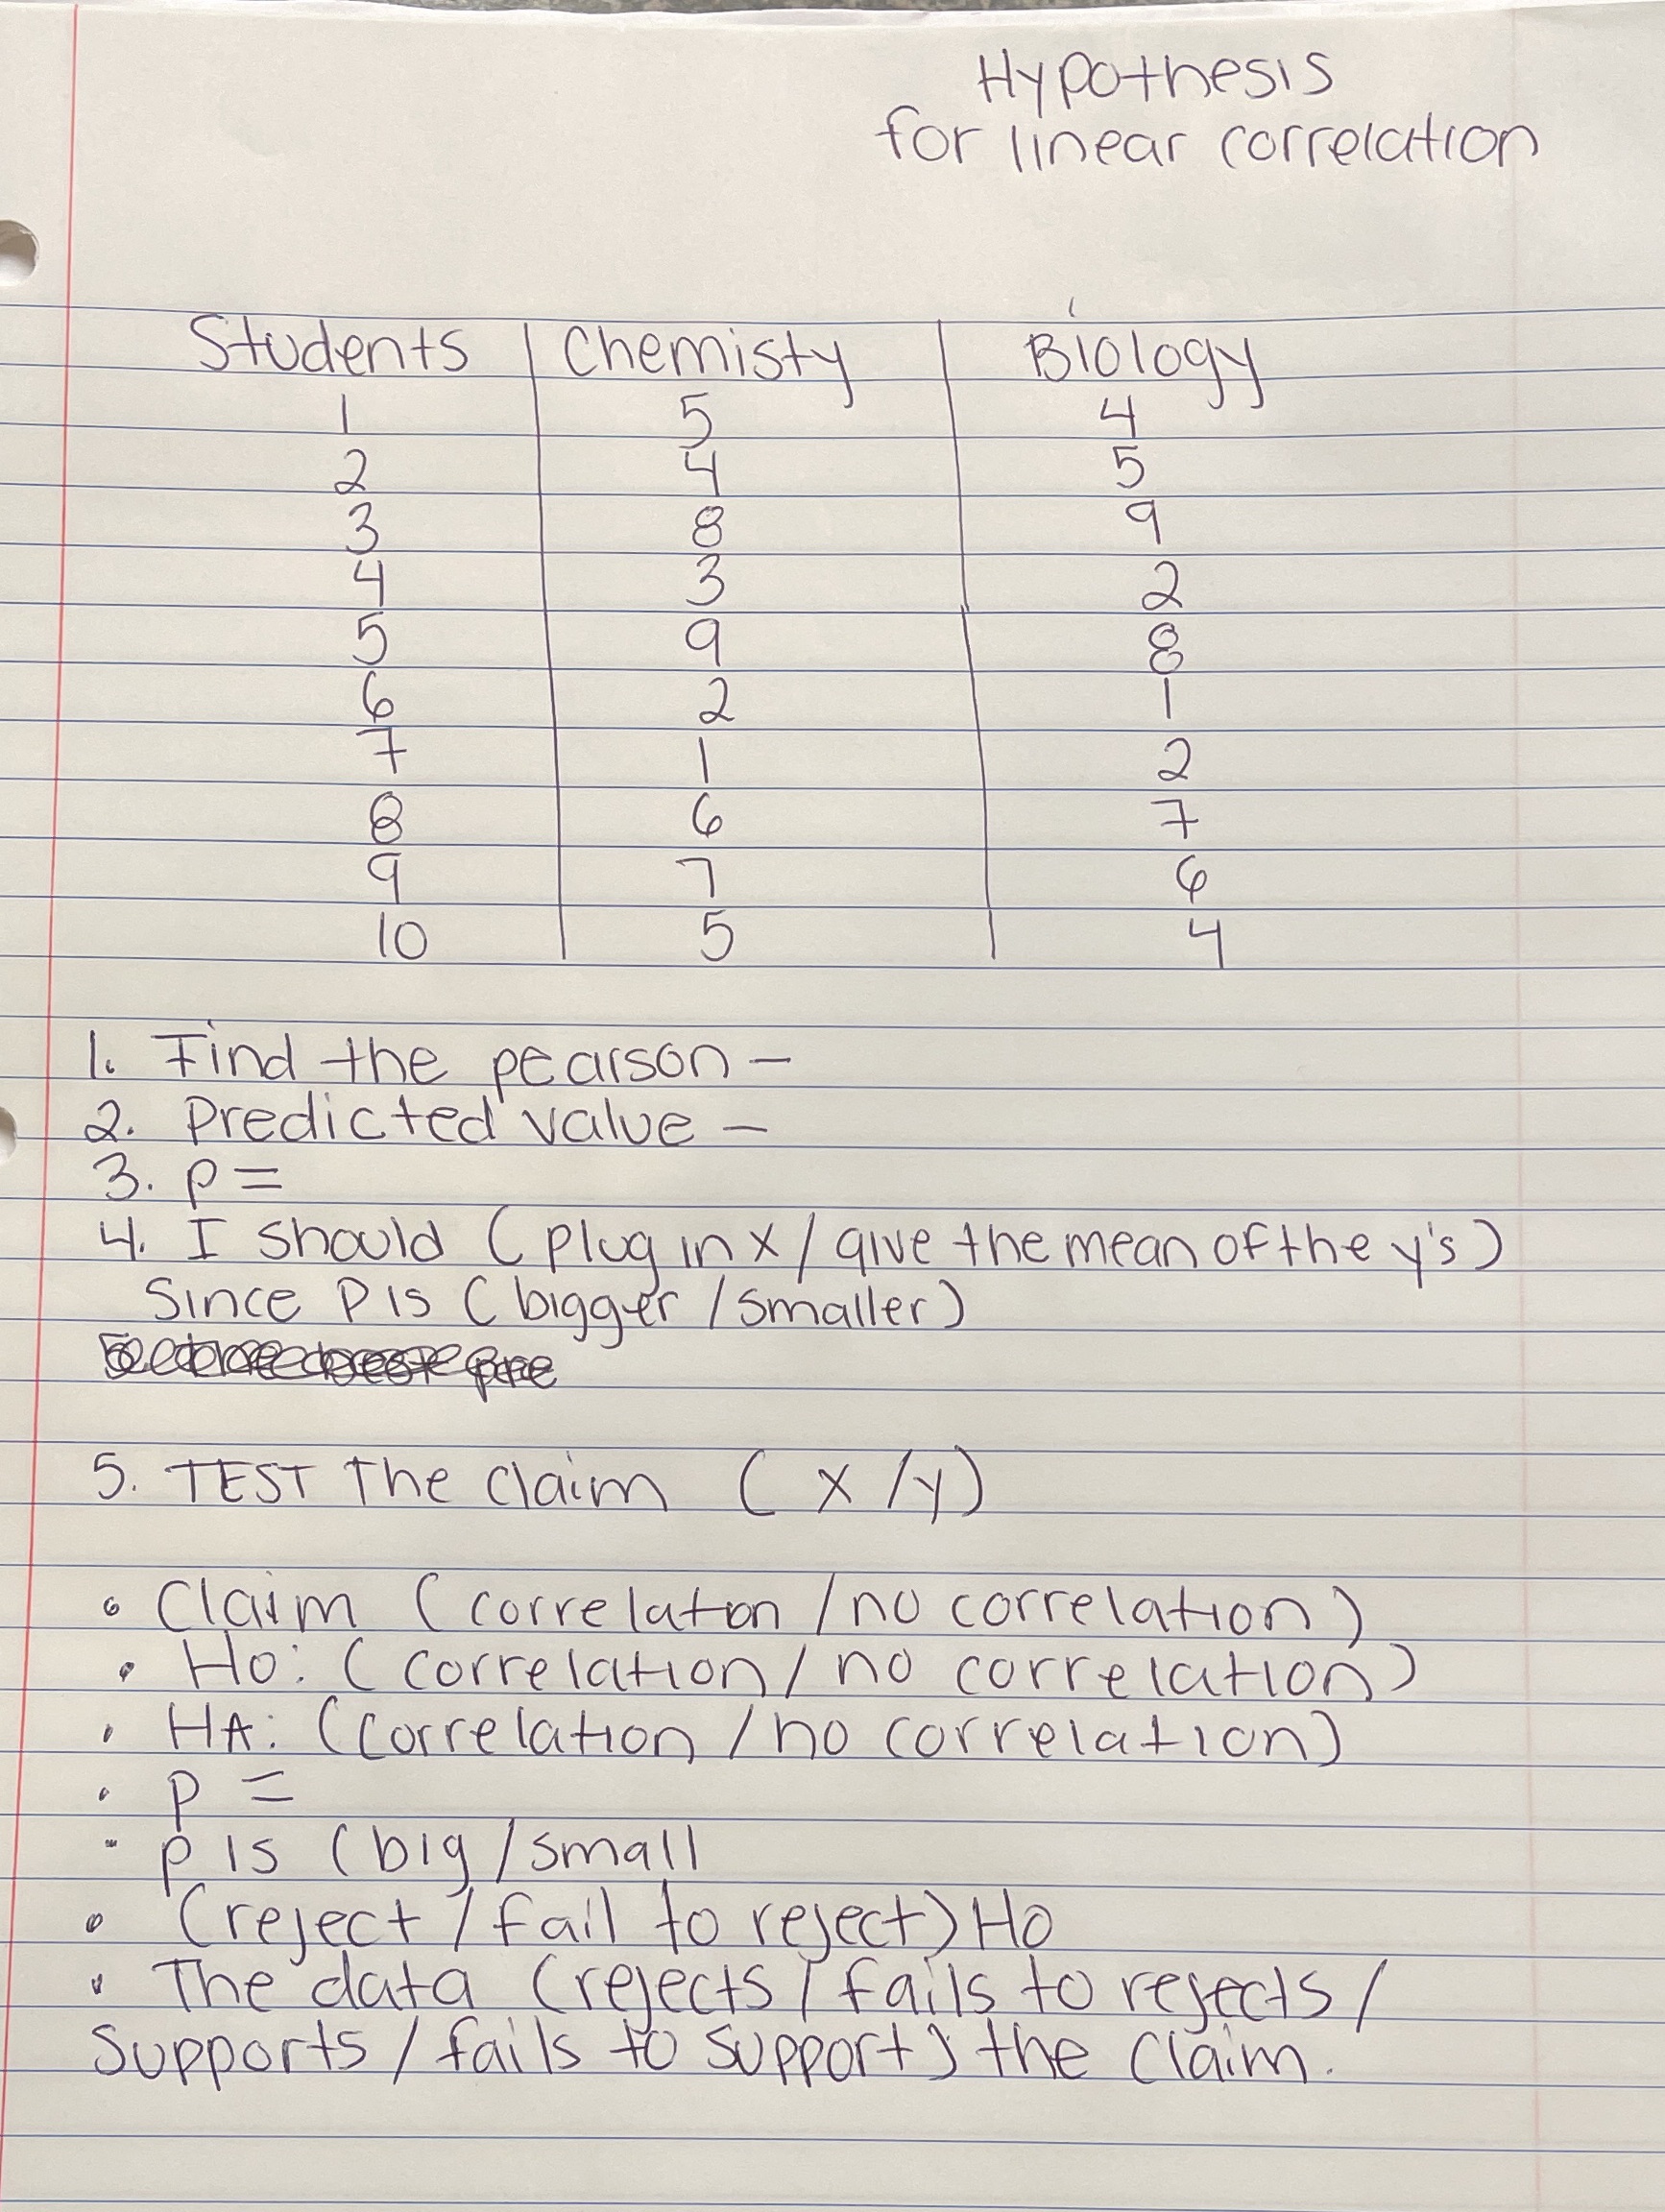 Hypothesis
for linear correlation
Students | Chemisty | Biology
1 5 4
2 4 5
3 8 9
4 3 2
5 9 8
6 2 1
7 1 2
8 6 7
9 7 6
10 5 4
1. Find the pearson –
2. Predicted value –
3. p =
4. I should (plug in x / give the mean of the y's)
Since P is (bigger / smaller)
5. TEST The claim ( x / y)
• Claim (correlaton / no correlation)
• Ho: ( correlation / no correlation)
• HA: (correlation / no correlation)
• p =
• p is (big / small
• (reject / fail to reject) Ho
• The data (rejects / fails to rejects /
Supports / fails to support) the claim.